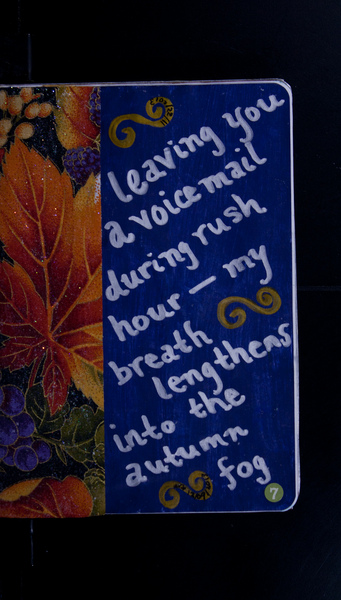 leaving you
a voice mail
during rush
hour — my
breath
lengthens
into the
autumn
fog
7